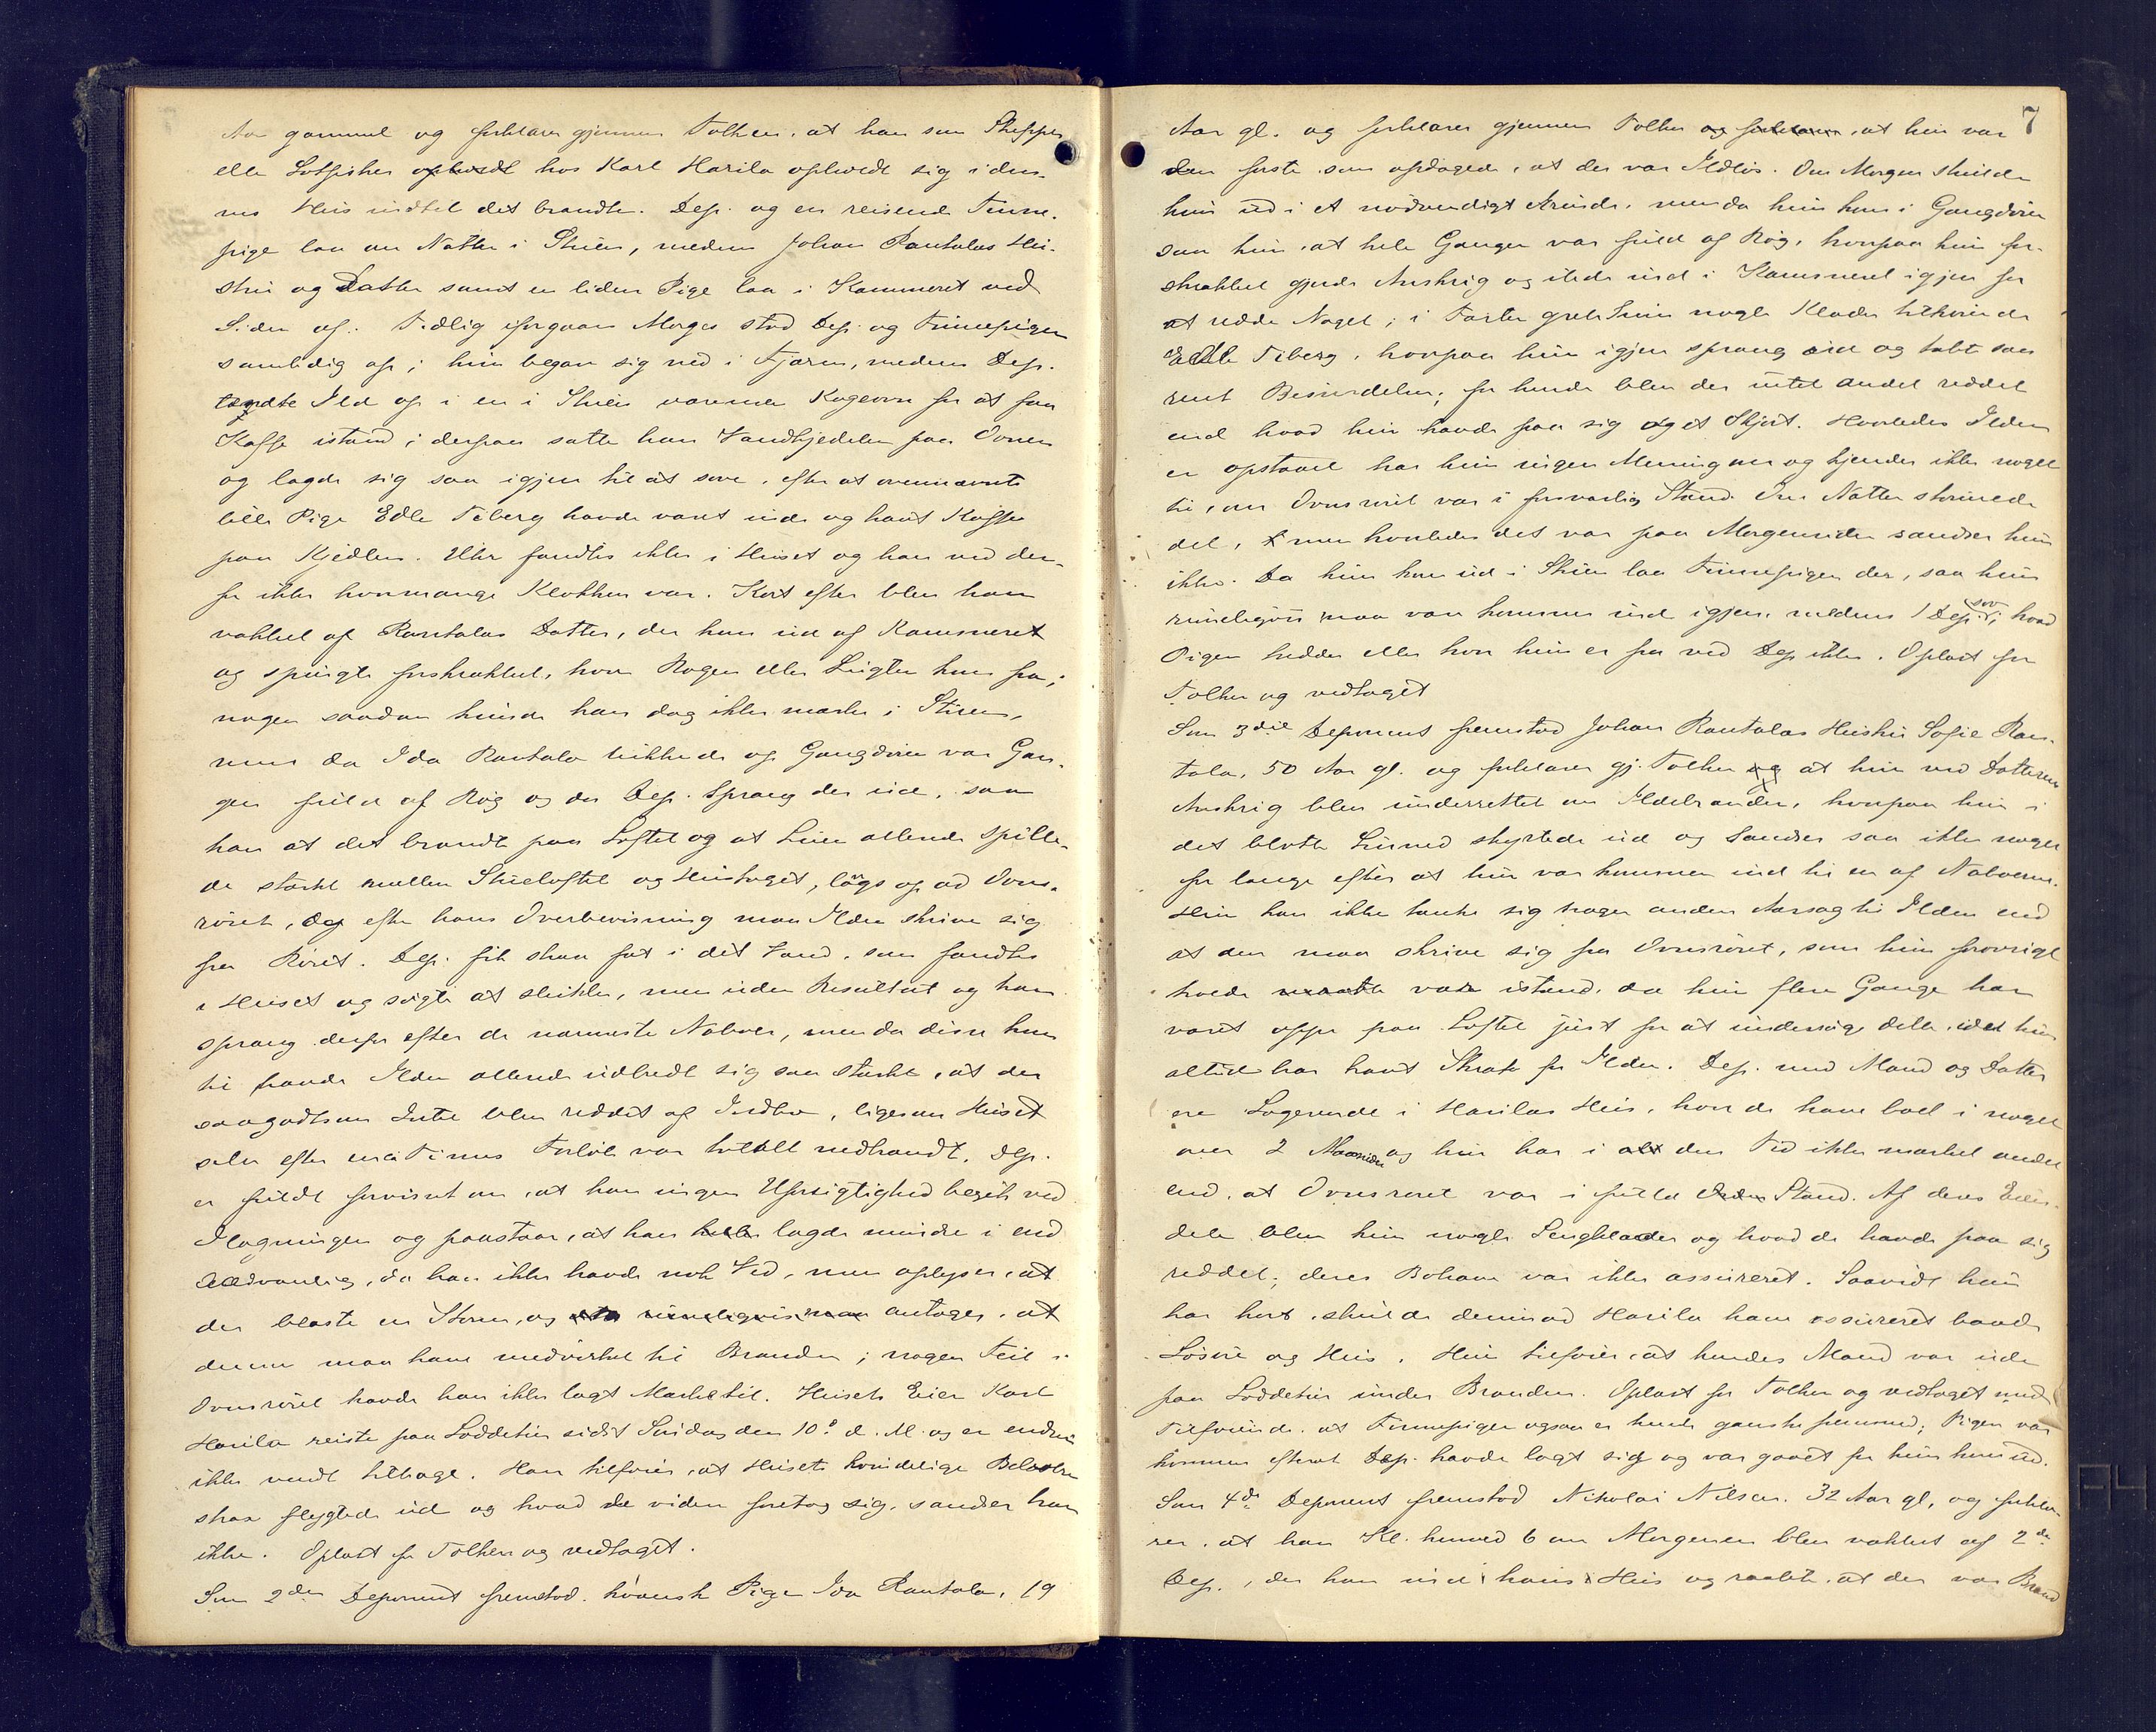 Aar gammel og forklarer gjennem Tolken, at han som Skipper
eller Lotfisker opholdt hos Karl Harila opholdt sig i den-
nes Hus indtil det brandte. Dep. og en reisende Finne-
pige laa om Natten i Stuen, medens Johan Rantalas Hu-
stru og Datter samt en liden Pige laa i Kammeret ved
Siden af. Tidlig igaar Morges stod Dep. og Finnepigen
samtidig op; hun begav sig ned i Fjæren, medens Dep.
tændte Ild op i en i Stuen værende Kogeovn for at faa
Kaffe istand; derpaa satte han Vandkjedelen paa Ovnen
og lagde sig saa igjen til at sove, efter at ovennævnte
lille Pige Edle Tiberg havde været inde og havt Kaffe
paa Kjedlen. Uhr fandtes ikke i Huset og han ved der-
for ikke hvormange Klokken var. Kort efter blev han
vækket af Rantalas Datter, der kom ud af Kammeret
og spurgte forskrækket, hvor Røgen eller Lugten kom fra;
nogen saadan kunde han dog ikke mærke i Stuen,
men da Ida Rantala lukkede op Gangdøren var Gan-
gen fuld af Røg og da Dep. sprang der ud, saa
han at det brændte paa Loftet og at Luen allerede spille-
de stærkt mellem Stueloftet og Hustaget, langs op ad Ovns-
røret, og efter hans Overbevisning maa Ilden skrive sig
fra Røret. Dep. fik straks fat i det Vand, som fandtes
i Huset og søgte at slukke, men uden Resultat og han
sprang derfor efter de nærmeste Naboer, men da disse kom
til havde Ilden allerede udbredt sig saa stærkt, at der
saagodtsom Intet blev reddet af Indbo, ligesom Huset
selv efter circa Times Forløb var totalt nedbrændt. Dep.
er fuldt forvisset om, at han ingen Uforsigtighed begik ved
Ilægningen og paastaar, at han heller lagde mindre i end
sædvanlig, da han ikke havde nok Ved, men oplyser, at
der blæste en Storm, og antager, at
denne maa have medvirket til Branden; nogen Feil i
Ovnsrøret havde han ikke lagt Mærke til. Husets Eier Karl
Harila reiste paa Loddetur sidst Søndag den 10de d. M. og er endnu
ikke vendt tilbage. Han tilføier, at Husets kvindelige Beboere
strax flygtede ud og hvad de videre foretog sig, sandser han
ikke. Oplæst for Tolken og vedtaget.
Som 2den Deponent fremstod kvænsk Pige Ida Rantala, 19
7
Aar gl. og forklarer gjennem Tolken og forklarer, at hun var
den første som opdagede, at der var Ildløs. Om Morgen skulde
hun ud i et nødvendigt Ærinde, men da hun kom i Gangdøren
saa hun, at hele Gangen var fuld af Røg, hvorpaa hun for-
skrækket gjorde Anskrig og ilede ind i Kammeret igjen for
at redde Noget; i Farten greb hun nogle Klæder tilhørende
Edle Tiberg, hvorpaa hun igjen sprang ud og tabte saa
rent Besindelsen; for hende blev der intet andet reddet
end hvad hun havde paa sig og et Skjørt. Hvorledes Ilden
er opstaaet har hun ingen Mening om og kjender ikke noget
til, om Ovnsrøret var i forsvarlig Stand. Om Natten stormede
det, men hvorledes det var paa Morgensiden sandser hun
ikke. Da hun kom ud i Stuen laa Finnepigen der, saa hun
rimeligvis maa være kommen ind igjen, medens 1 Dep. sov; hvad
Pigen hedder eller hvor hun er fra ved Dep. ikke. Oplæst for
Tolken og vedtaget
Som 3die Deponent fremstod Johan Rantalas Hustru Sofie Ran-
tala, 50 Aar gl. og forklarer gj. Tolken og at hun ved Datterens
Anskrig blev underrettet om Ildebranden, hvorpaa hun i
det blotte Linned styrtede ud og sandser saa ikke noget
før længe efter at hun var kommen ind til en af Naboerne.
Hun kan ikke tænke sig nogen anden Aarsag til Ilden end
at den maa skrive sig fra Ovnsrøret, som hun forøvrigt
troede var istand, da hun flere Gange har
været oppe paa Loftet just for at undersøge dette, idet hun
altid har havt Skræk for Ilden. Dep. med Mand og Datter
ere Logerende i Harilas Hus, hvor de have boet i noget
over 2 Maaneder og hun har i alt den Tid ikke mærket andet
end, at Ovnsrøret var i fuld Stand. Af deres Eien-
dele blev kun nogle Sengklæder og hvad de havde paa sig
reddet; deres Bohave var ikke assureret. Saavidt hun
har hørt, skulde derimod Harila have assureret baade
Løsøre og Hus. Hun tilføier, at hendes Mand var ude
paa Loddetur under Branden. Oplæst for Tolken og vedtaget med
Tilføiende, at Finnepigen ogsaa er hende ganske fremmed; Pigen var
kommen efterat Dep. havde lagt sig og var gaaet før hun kom ud.
Som 4de Deponent fremstod Nikolai Nilsen, 32 Aar gl., og forkla-
rer, at han Kl. henved 6 om Morgenen blev vækket af 2den
Dep., der kom ind i hans Hus og raabte, at der var Brand